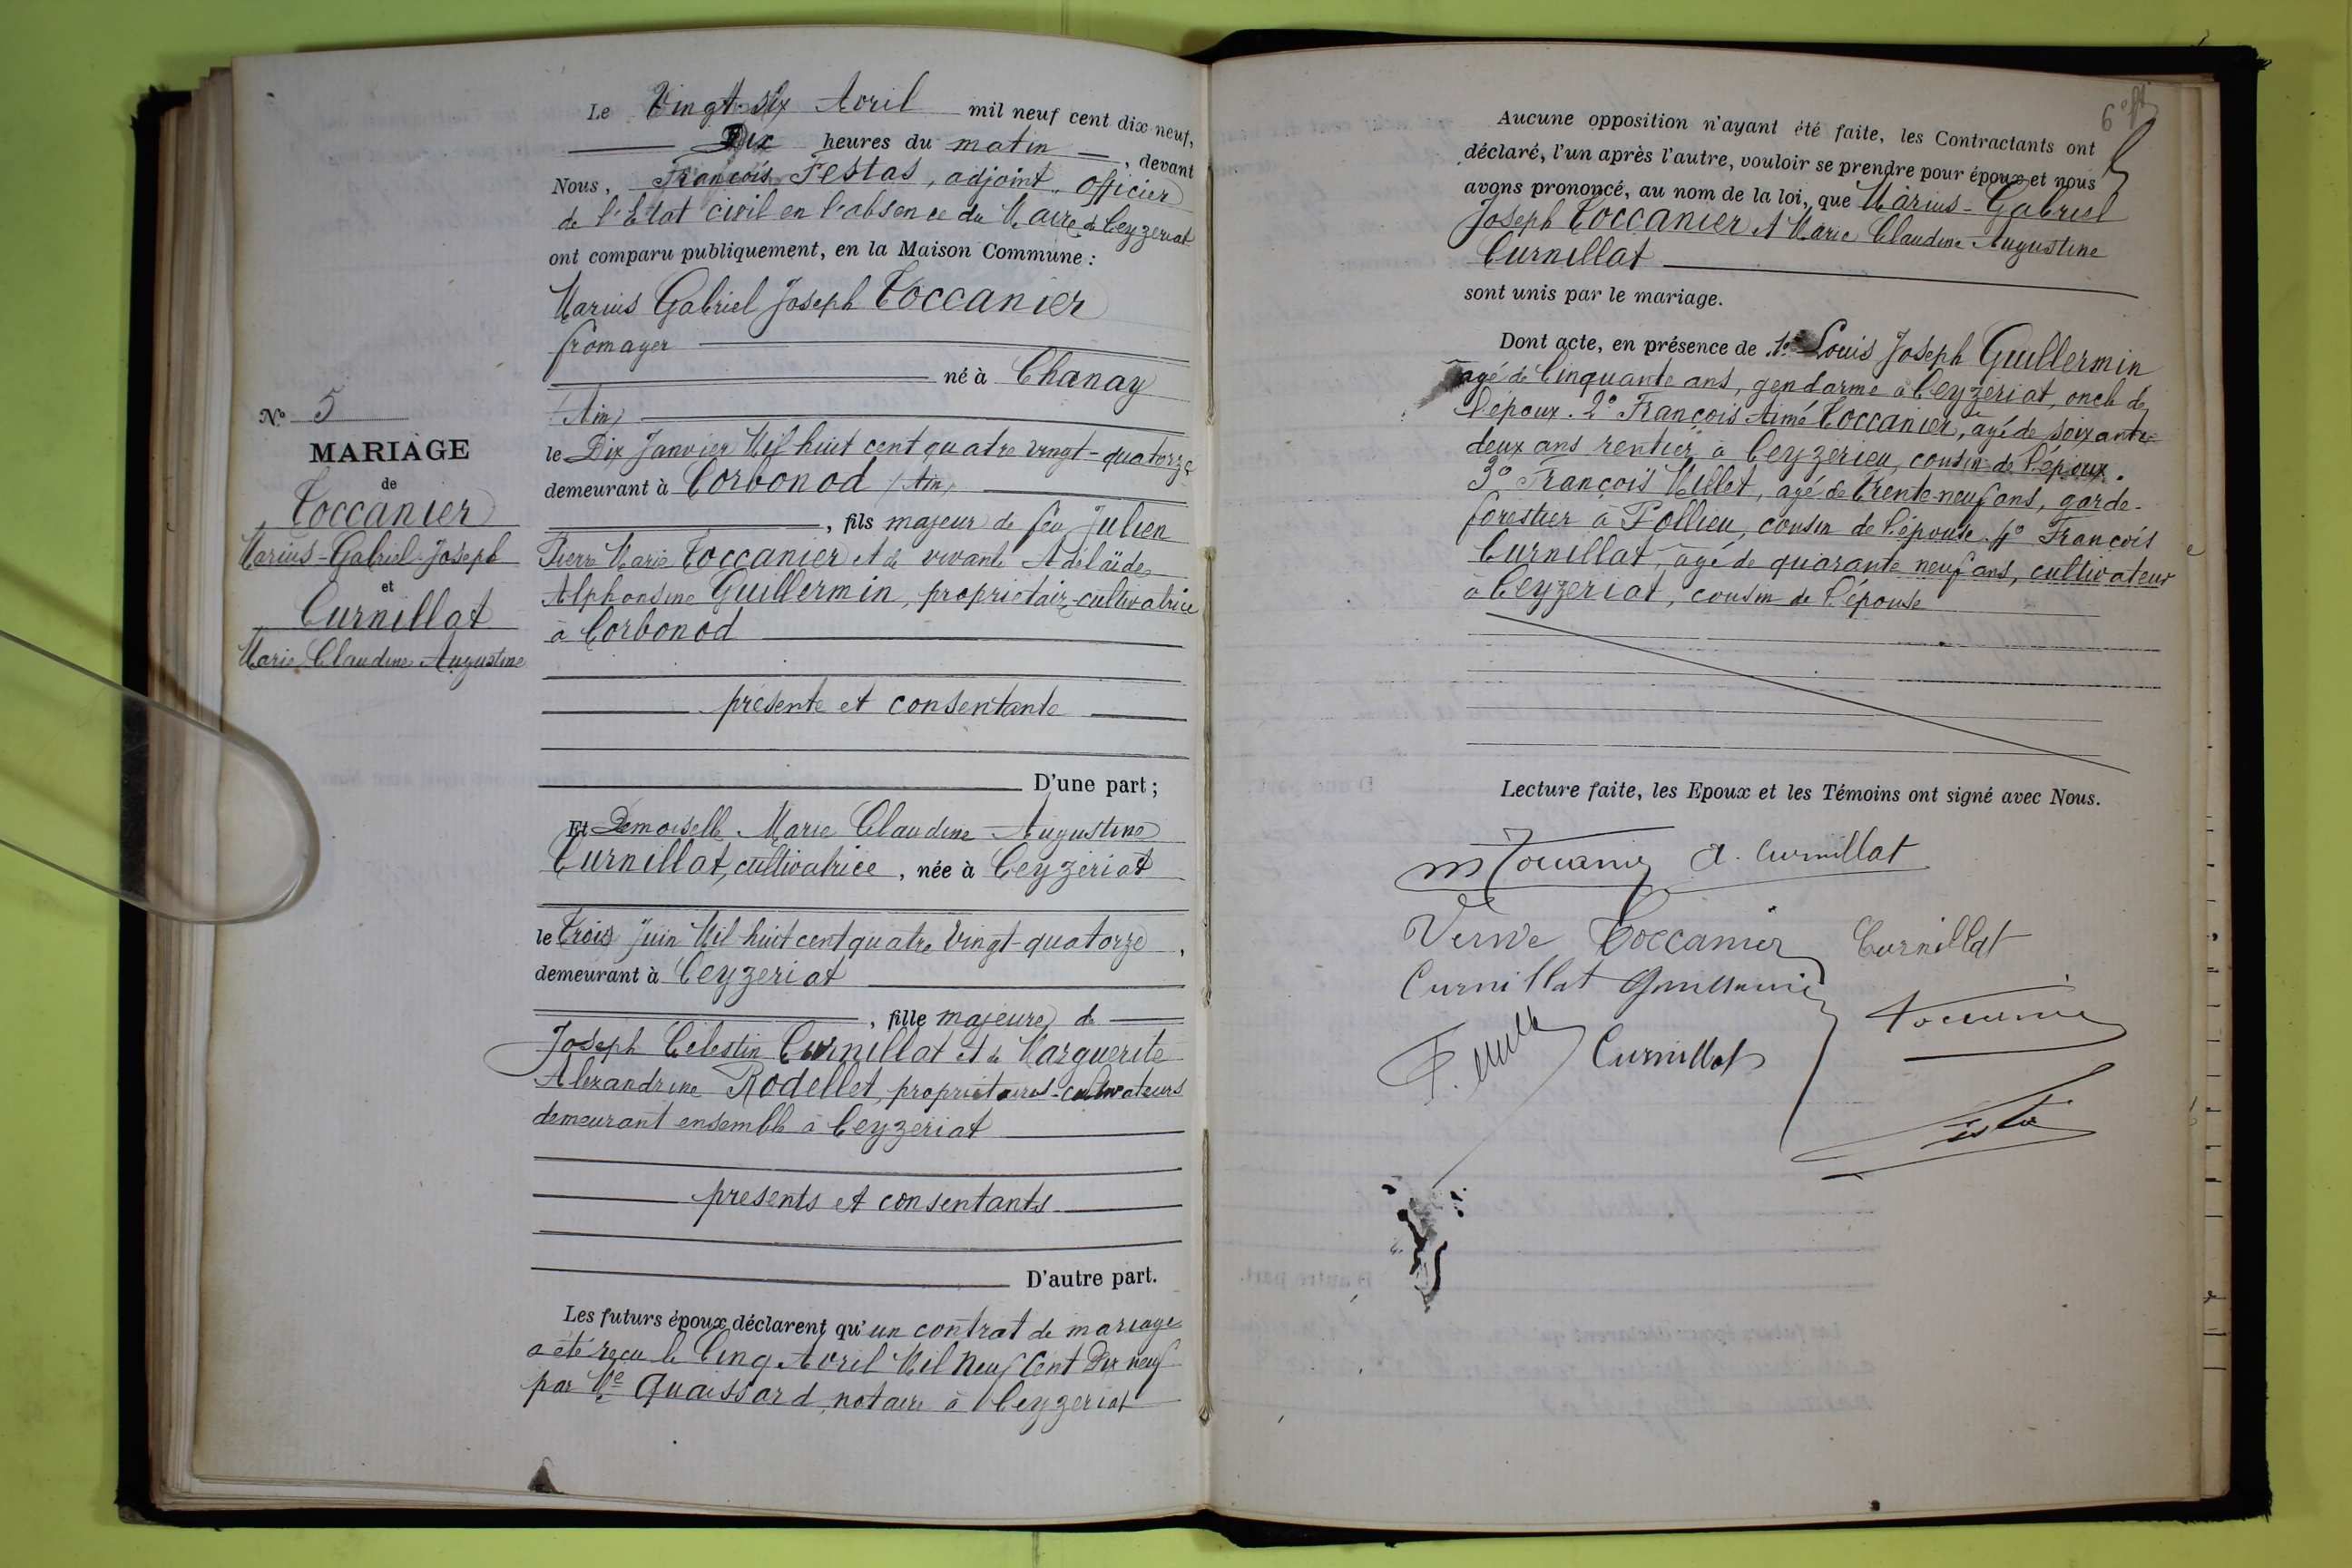 Le Vingt-six Avril mil neuf cent dix-neuf,
Dix heures du matin, devant
Nous, François Festas, adjoint, officier
de l'Etat civil en l'absence du Maire de Ceyzeriat
ont comparu publiquement, en la Maison Commune :
Marius Gabriel Joseph Toccanier
fromager
né à Chanay
(Ain)
le Dix Janvier Mil huit cent quatre vingt-quatorze
demeurant à Corbonod (Ain)
, fils majeur de feu Julien
Pierre Marie Toccanier et de vivante Adélaïde
Alphonsine Guillermin, propriétaire-cultivatrice
à Corbonod
présente et consentante
D'une part ;
Et Demoiselle Marie Claudine Augustine
Curnillat, cultivatrice, née à Ceyzeriat
le Trois Juin Mil huit cent quatre vingt-quatorze,
demeurant à Ceyzeriat
, fille majeure de
Joseph Célestin Curnillat et de Marguerite
Alexandrine Rodellet, propriétaires-cultivateurs
demeurant ensemble à Ceyzeriat
présents et consentants
D'autre part.
Les futurs époux déclarent qu'un contrat de mariage
a été reçu le Cinq Avril Mil Neuf Cent Dix neuf
par Me Quaissard, notaire à Ceyzeriat
No 5
MARIAGE
de
Toccanier
Marius-Gabriel-Joseph
et
Curnillat
Marie Claudine Augustine
6
Aucune opposition n'ayant été faite, les Contractants ont
déclaré, l'un après l'autre, vouloir se prendre pour époux et nous
avons prononcé, au nom de la loi, que Marius-Gabriel
Joseph Toccanier et Marie Claudine Augustine
Curnillat
sont unis par le mariage.
Dont acte, en présence de 1o Louis Joseph Guillermin
agé de Cinquante ans, gendarme à Ceyzeriat, oncle de
l'époux. 2o François Aimé Toccanier, agé de soixante-
deux ans rentier à Ceyzerieu, cousin de l'époux.
3o François Millet, agé de Trente-neuf ans, garde-
forestier à Pollieu, cousin de l'épouse. 4o François
Curnillat, agé de quarante neuf ans, cultivateur
à Ceyzeriat, cousin de l'épouse
Lecture faite, les Epoux et les Témoins ont signé avec Nous.
M Toccanier A. Curnillat
Veuve Toccanier Curnillat
Curnillat Guillermin
Toccanier
Curnillat